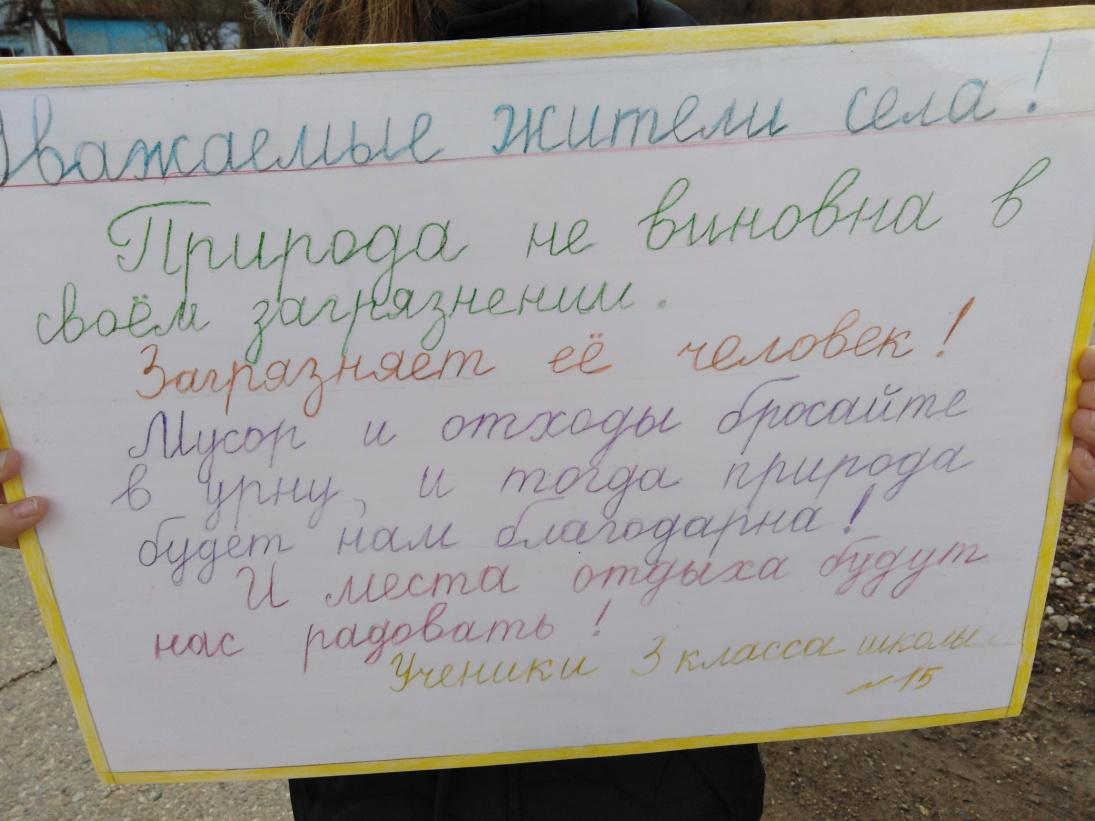 Уважаемые жители села!
Природа не виновна в
своём загрязнении.
Загрязняет её человек!
Мусор и отходы бросайте
в урну, и тогда природа
будет нам благодарна!
И места отдыха будут
нас радовать!
Ученики 3 класса школы
№15